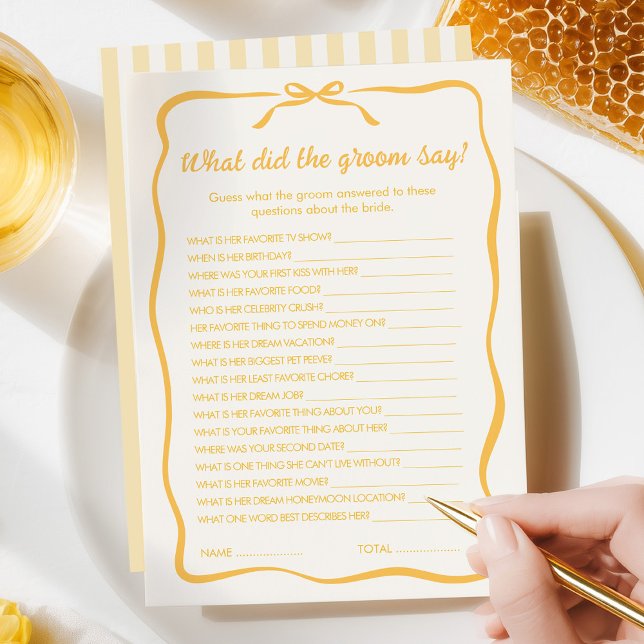 What did the groom say?
Guess what the groom answered to these
questions about the bride.
WHAT IS HER FAVORITE TV SHOW? ____________________
WHEN IS HER BIRTHDAY? ____________________
WHERE WAS YOUR FIRST KISS WITH HER? ____________________
WHAT IS HER FAVORITE FOOD? ____________________
WHO IS HER CELEBRITY CRUSH? ____________________
HER FAVORITE THING TO SPEND MONEY ON? ____________________
WHERE IS HER DREAM VACATION? ____________________
WHAT IS HER BIGGEST PET PEEVE? ____________________
WHAT IS HER LEAST FAVORITE CHORE? ____________________
WHAT IS HER DREAM JOB? ____________________
WHAT IS HER FAVORITE THING ABOUT YOU? ____________________
WHAT IS YOUR FAVORITE THING ABOUT HER? ____________________
WHERE WAS YOUR SECOND DATE? ____________________
WHAT IS ONE THING SHE CAN'T LIVE WITHOUT? ____________________
WHAT IS HER FAVORITE MOVIE? ____________________
WHAT IS HER DREAM HONEYMOON LOCATION? ____________________
WHAT ONE WORD BEST DESCRIBES HER? ____________________
NAME .................... TOTAL ....................